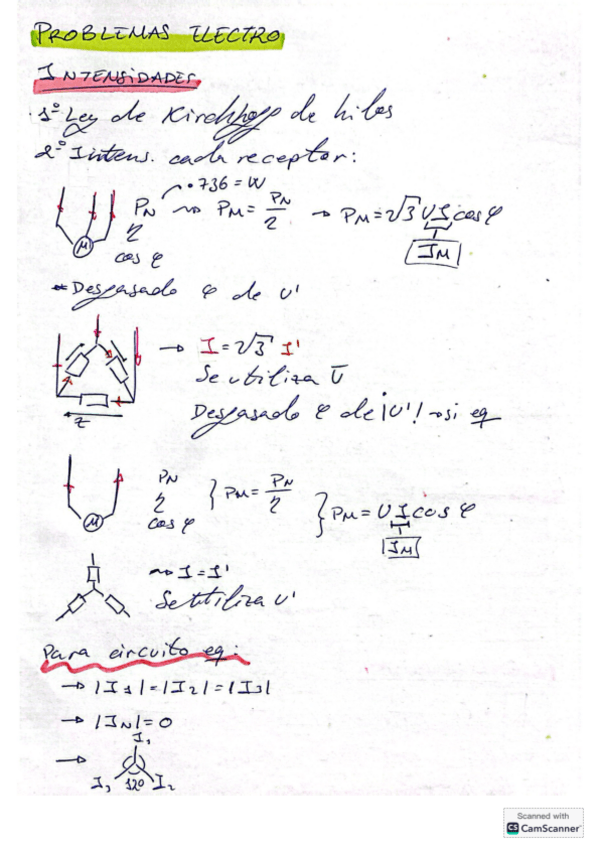 PROBLEMAS ELECTRO
INTENSIDADES
· 1º Ley de Kirchhoff de hilos
2º Intens. cada receptor:
·736 = W
PN → PM = PN/η → PM = √3 U I cos φ
η
cos φ
IM
M
* Desfasado φ de U'
→ I = √3 I'
Se utiliza U
Desfasado φ de ¡U'! → si eq
Z
PN
η
cos φ
} PM = PN/η
} PM = U I cos φ
IM
M
→ I = I'
Se utiliza U'
Para circuito eq:
→ |I1| = |I2| = |I3|
→ |IN| = 0
→ I1
I3 120º I2
Scanned with
CS CamScanner